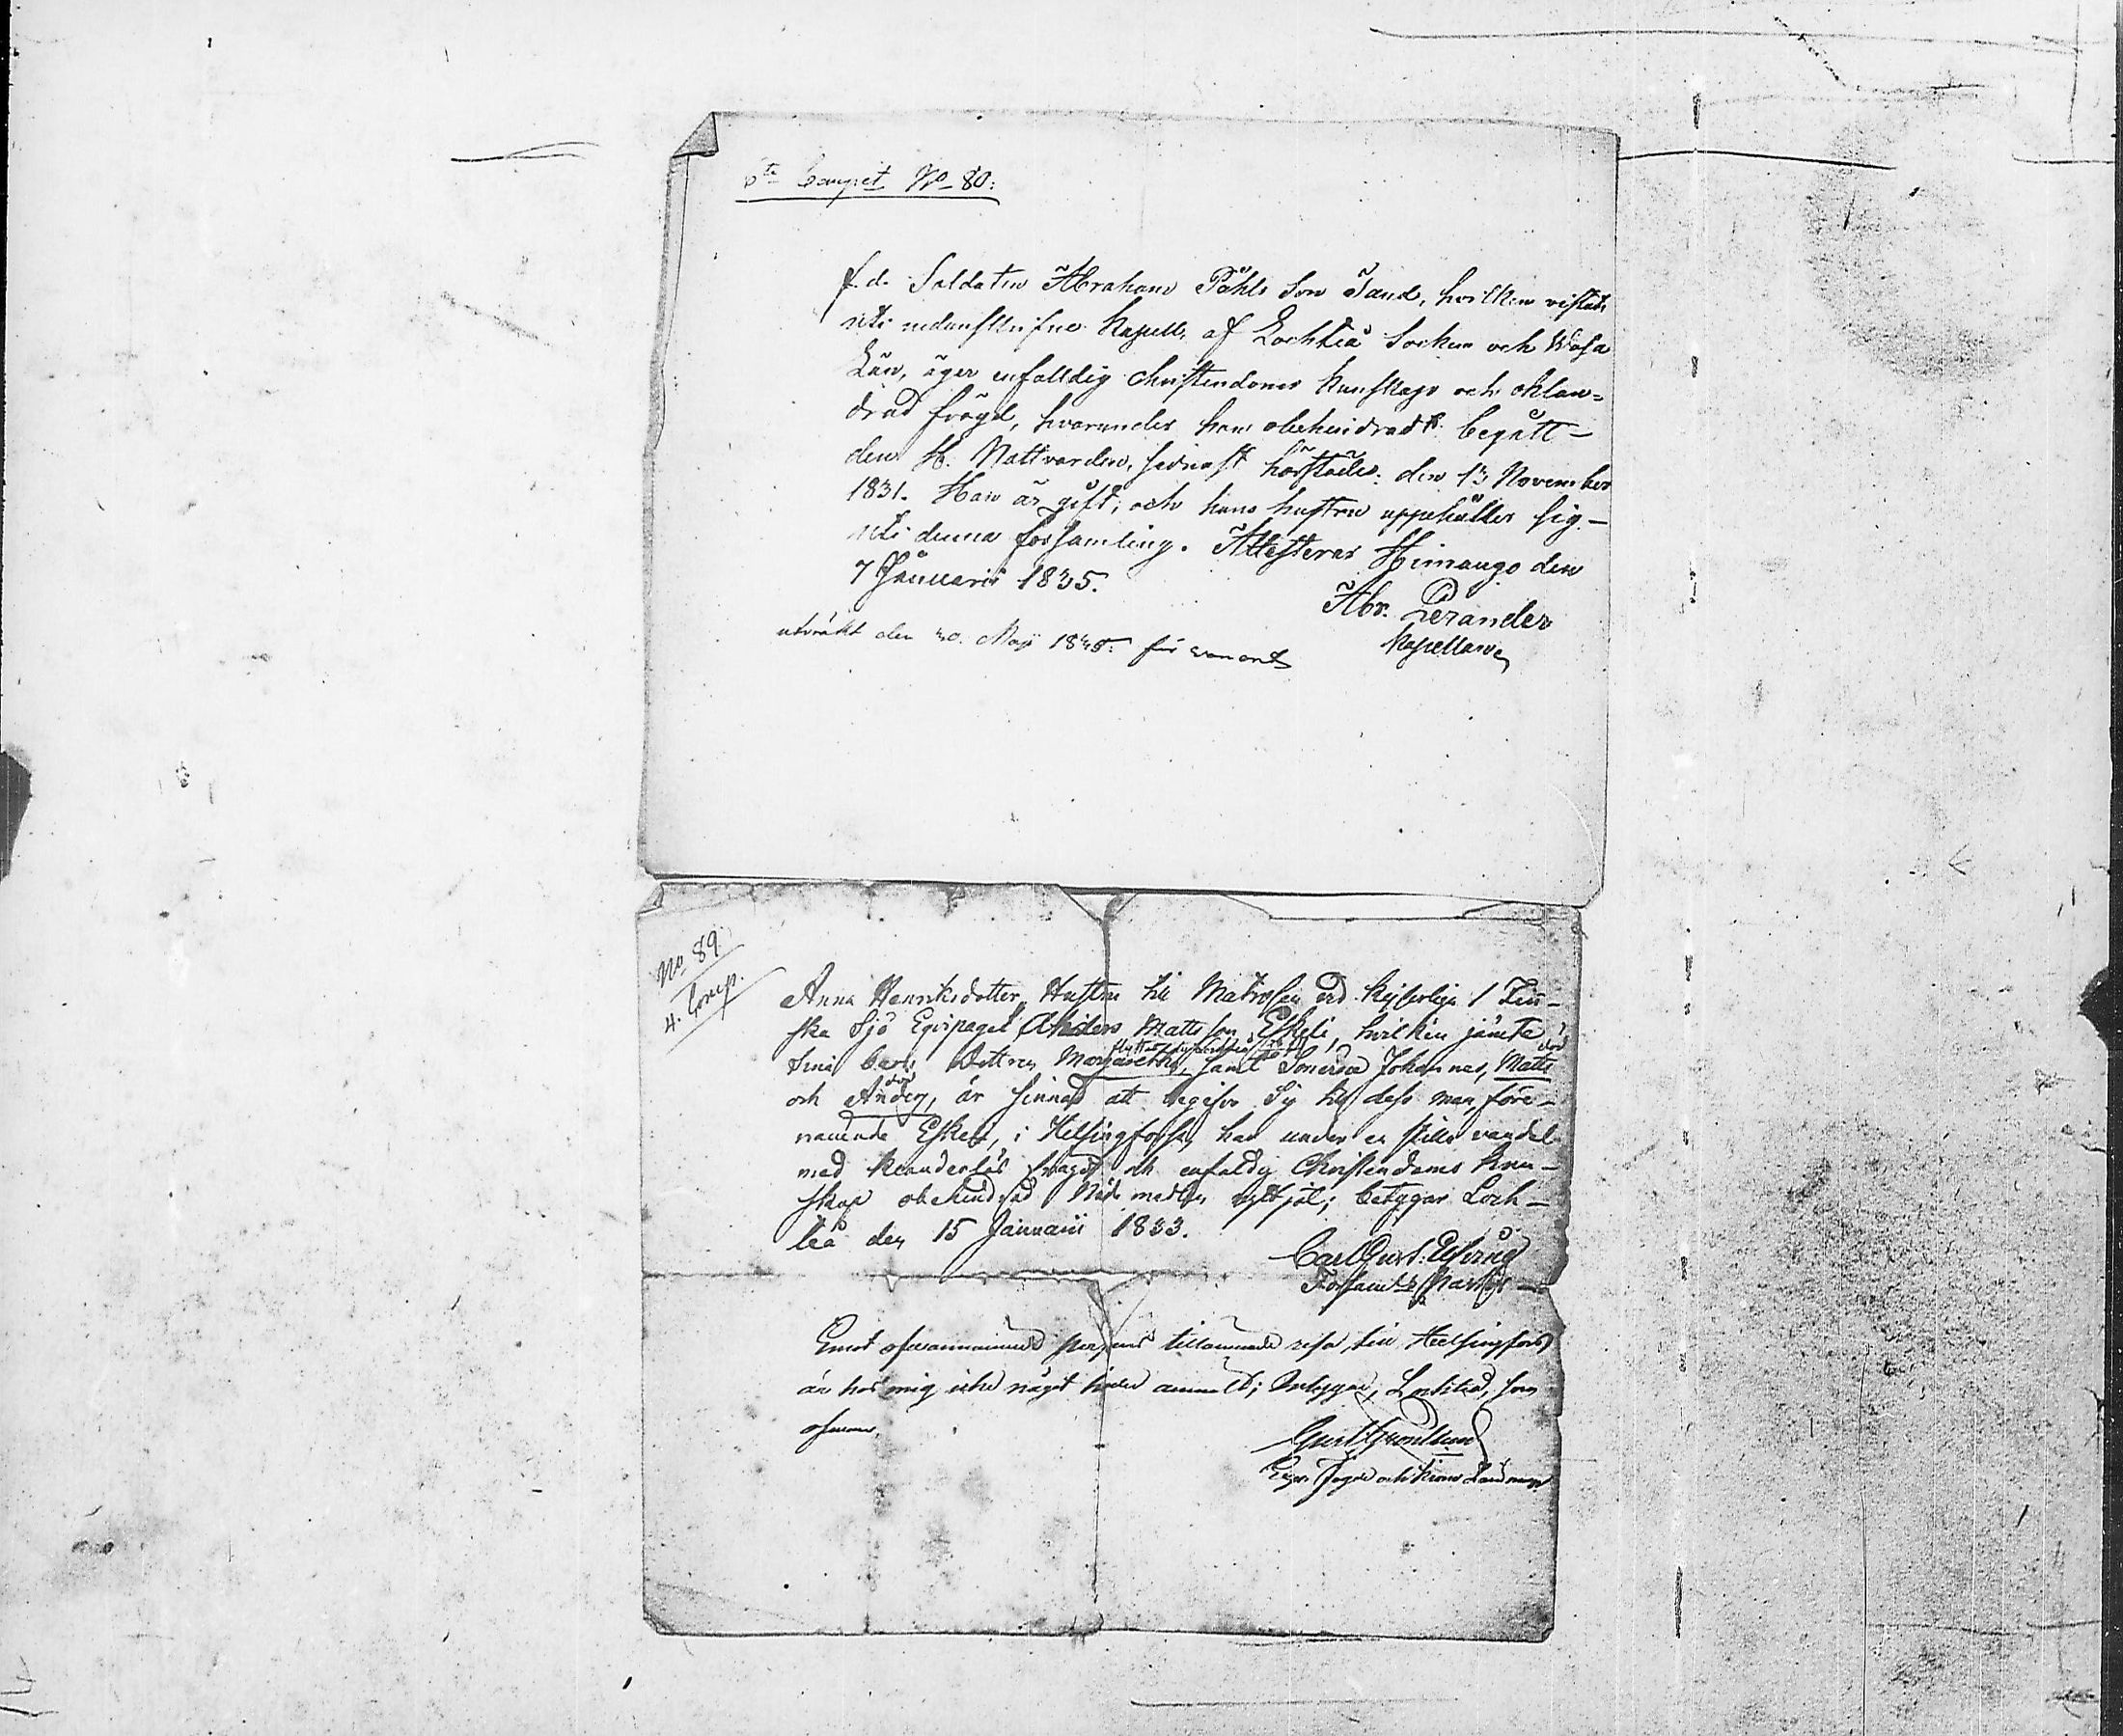 6te Compet No 80:
f. d. Soldaten Abraham Påhls Son Sand, hvilken vistats
uti nedanskrifne Kapell af Lochteå Socken och Wasa
Län, äger enfalldig Christendoms kunskap och oklan=
drad frägd, hvarunder han obehindradt begått
den H. Nattvarden, sednast härstädes den 13 November
1831. Han är gift, och hans hustru uppehåller sig
uti denna församling. Attesteras Himango den
7 Januarii 1835.
Abr. Perander
Kapellan
uträkt den 30. Maji 1835.
No 89
4. Comp.
Anna Henriksdotter, Hustru till Matrosen vid Kejserliga 1 Fin-
ska Sjö Equipaget Anders Mattsson Eskeli, hvilken jämte
sina barn Dottren Margaretha, samt Sönerna Johannes, Matts
död
och Anders, är sinnad att begifva sig till dess man, före-
död
nämnde Eskeli, i Helsingfors, har under en stilla vandel
med klanderlös frägd och enfaldig Christendoms kun-
skap obehindrad Nåde medlen nyttjat; betygar Loch-
teå den 15 Januarii 1833.
Carl Gust.
Emot ofvannämnde persons tillämnade resa till Helsingfors
är hos mig icke något hinder anmält; Betygar, Lochteå, som
ofvan.
Gust. Grönlund
och Krono Länsman